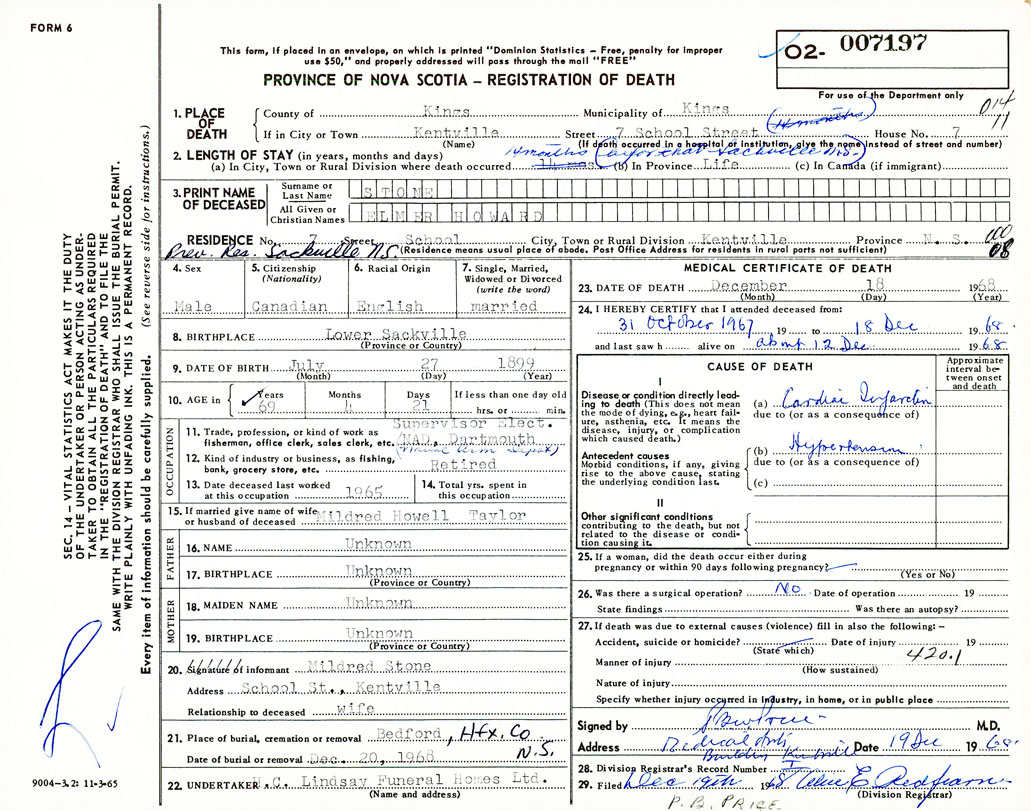 FORM 6
This form, if placed in an envelope, on which is printed "Dominion Statistics – Free, penalty for improper
use $50," and properly addressed will pass through the mail "FREE"
O2- 007197
PROVINCE OF NOVA SCOTIA – REGISTRATION OF DEATH
For use of the Department only
014
11
1. PLACE OF DEATH
County of Kings Municipality of Kings
(14 months)
If in City or Town Kentville Street 7 School Street House No. 7
(Name) (If death occurred in a hospital or institution, give the name instead of street and number)
2. LENGTH OF STAY (in years, months and days) 14 months
(a) In City, Town or Rural Division where death occurred 14 mos. (b) In Province Life (c) In Canada (if immigrant)
3. PRINT NAME OF DECEASED
Surname or Last Name STONE
All Given or Christian Names ELMER HOWARD
RESIDENCE No. 7 Street School City, Town or Rural Division Kentville Province N. S.
000
08
Prev. Res. Sackville N.S. (Residence means usual place of abode. Post Office Address for residents in rural parts not sufficient)
4. Sex
Male
5. Citizenship (Nationality)
Canadian
6. Racial Origin
English
7. Single, Married, Widowed or Divorced (write the word)
married
8. BIRTHPLACE Lower Sackville
(Province or Country)
9. DATE OF BIRTH July 27 1899
(Month) (Day) (Year)
10. AGE in Years Months Days If less than one day old
69 4 21 hrs. or min.
OCCUPATION
Supervisor Elect.
11. Trade, profession, or kind of work as
fisherman, office clerk, sales clerk, etc. NAD, Dartmouth
12. Kind of industry or business, as fishing, (Naval Arm Depot)
bank, grocery store, etc. Retired
13. Date deceased last worked
at this occupation 1965
14. Total yrs. spent in
this occupation
15. If married give name of wife
or husband of deceased Mildred Howell Taylor
FATHER
16. NAME Unknown
17. BIRTHPLACE Unknown
(Province or Country)
MOTHER
18. MAIDEN NAME Unknown
19. BIRTHPLACE Unknown
(Province or Country)
20. Signature of informant Mildred Stone
Address School St., Kentville
Relationship to deceased wife
21. Place of burial, cremation or removal Bedford, Hfx. Co.
N.S.
Date of burial or removal Dec. 20, 1968
22. UNDERTAKER W.C. Lindsay Funeral Homes Ltd.
(Name and address)
MEDICAL CERTIFICATE OF DEATH
23. DATE OF DEATH December 18 1968
(Month) (Day) (Year)
24. I HEREBY CERTIFY that I attended deceased from:
31 October 1967 19 to 18 Dec 1968
and last saw h alive on about 12 Dec 1968
CAUSE OF DEATH
Approximate interval between onset and death
I
Disease or condition directly leading to death (This does not mean the mode of dying, e.g., heart failure, asthenia, etc. It means the disease, injury, or complication which caused death.)
(a) Cardiac Infarction
due to (or as a consequence of)
Antecedent causes
Morbid conditions, if any, giving rise to the above cause, stating the underlying condition last.
(b) Hypertension
due to (or as a consequence of)
(c)
II
Other significant conditions
contributing to the death, but not related to the disease or condition causing it.
25. If a woman, did the death occur either during
pregnancy or within 90 days following pregnancy?
(Yes or No)
26. Was there a surgical operation? No Date of operation 19
State findings Was there an autopsy?
27. If death was due to external causes (violence) fill in also the following: –
Accident, suicide or homicide? Date of injury 19
(State which) 420.1
Manner of injury
(How sustained)
Nature of injury
Specify whether injury occurred in industry, in home, or in public place
Signed by M.D.
Address Medical Arts Date 19 Dec 1968
Building Kentville
28. Division Registrar's Record Number
29. Filed Dec 19th 1968
(Division Registrar)
P. B. PRICE
SEC. 14 – VITAL STATISTICS ACT MAKES IT THE DUTY
OF THE UNDERTAKER OR PERSON ACTING AS UNDER-
TAKER TO OBTAIN ALL THE PARTICULARS REQUIRED
IN THE "REGISTRATION OF DEATH" AND TO FILE THE
SAME WITH THE DIVISION REGISTRAR WHO SHALL ISSUE THE BURIAL PERMIT.
WRITE PLAINLY WITH UNFADING INK. THIS IS A PERMANENT RECORD.
Every item of information should be carefully supplied. (See reverse side for instructions.)
9004-3.2: 11-3-65